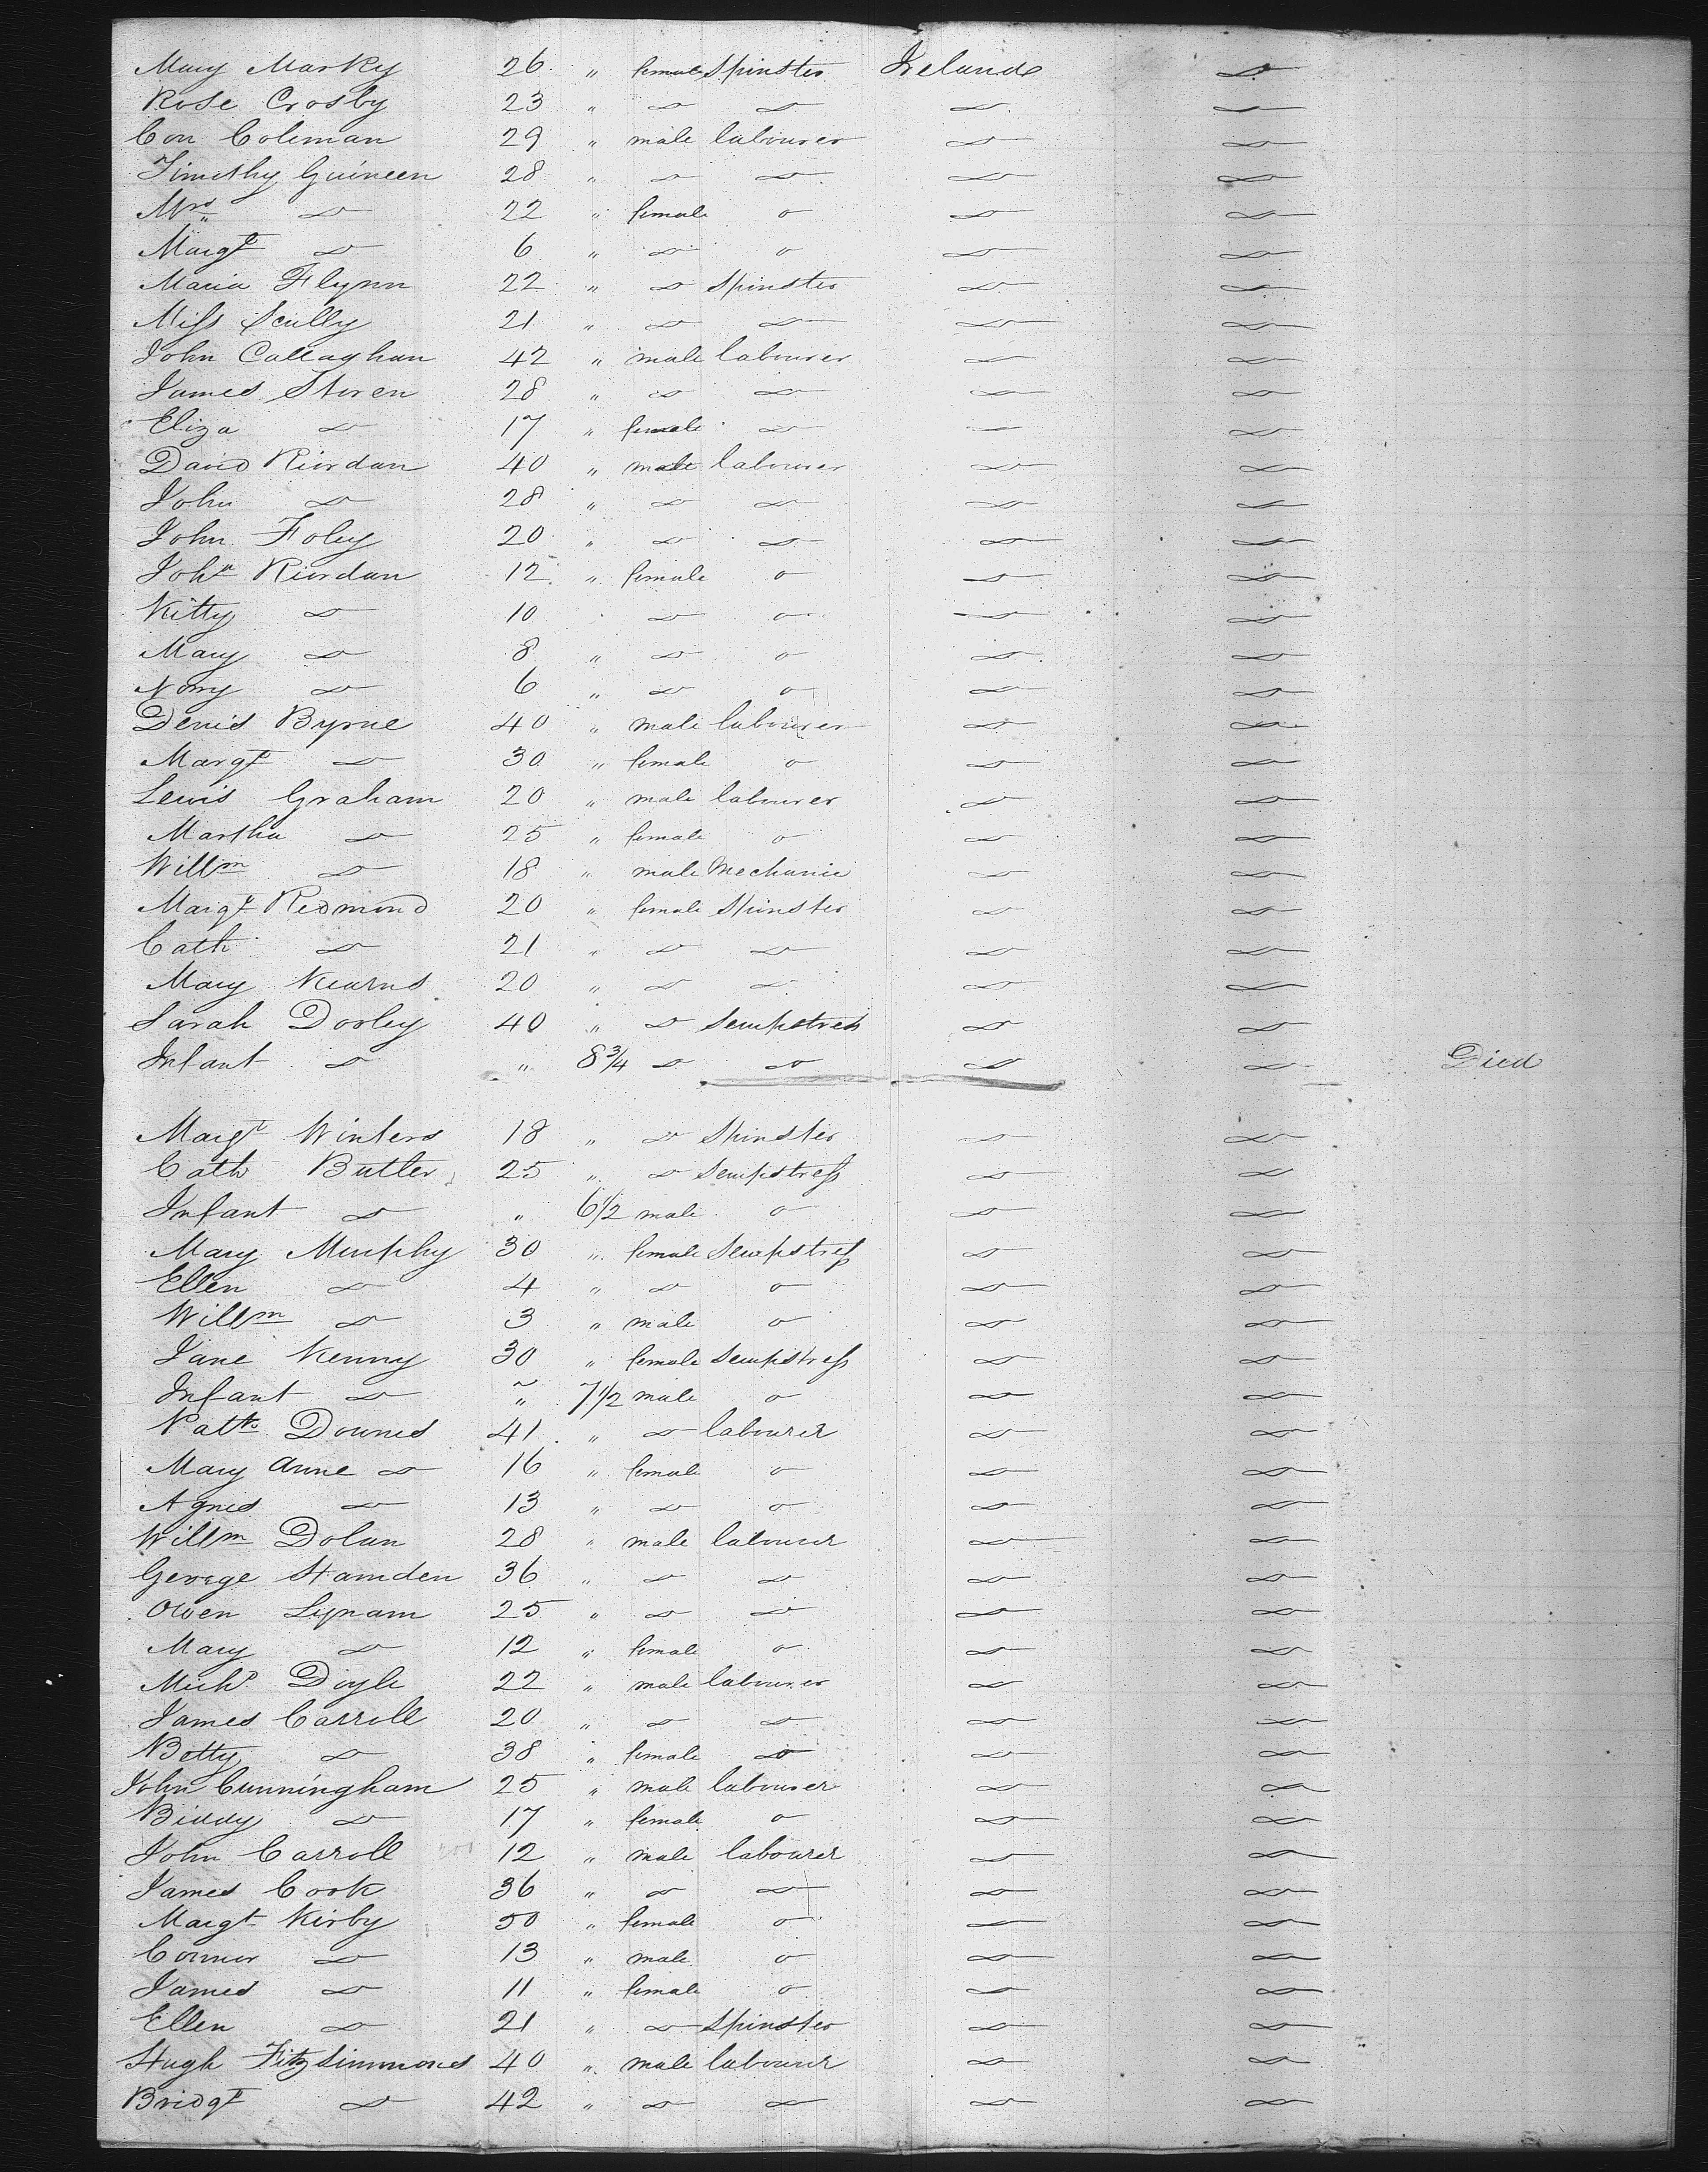 Mary Marky 26 " female Spinster Ireland do
Rose Crosby 23 " do do do do
Con Coleman 29 " male labourer do do
Timothy Guineen 28 " do do do do
Mrs do 22 " female o do do
Margt do 6 " do o do do
Maria Flynn 22 " do Spinster do do
Miss Scully 21 " do do do do
John Callaghan 42 " male labourer do do
James Storen 28 " do do do do
Eliza do 17 " female do do do
David Riordan 40 " male labourer do do
John do 28 " do do do do
John Foley 20 " do do do do
Joha Riordan 12 " female o do do
Kitty do 10 " do o do do
Mary do 8 " do o do do
Nony do 6 " do o do do
Denis Byrne 40 " male labourer do do
Margt do 30 " female o do do
Lewis Graham 20 " male labourer do do
Martha do 25 " female o do do
Willm do 18 " male Mechanic do do
Margt Redmond 20 " female Spinster do do
Cath do 21 " do do do do
Mary Kearns 20 " do do do do
Sarah Dooley 40 " do Sempstress do do
Infant do " 8 3/4 do o do do Died
Margt Winters 18 " do Spinster do do
Cath Butler 25 " do Sempstress do do
Infant do " 6 1/2 male o do do
Mary Murphy 30 " female Sempstress do do
Ellen do 4 " do o do do
Willm do 3 " male o do do
Jane Kenny 30 " female Sempstress do do
Infant do " 7 1/2 male o do do
Patk Downes 41 " do labourer do do
Mary Anne do 16 " female o do do
Agnes do 13 " do o do do
Willm Dolan 28 " male labourer do do
George Hamden 36 " do do do do
Owen Lynam 25 " do do do do
Mary do 12 " female o do do
Michl Doyle 22 " male labourer do do
James Carroll 20 " do do do do
Betty do 38 " female do do do
John Cunningham 25 " male labourer do do
Biddy do 17 " female o do do
John Carroll 12 " male labourer do do
James Cook 36 " do do do do
Margt Kirby 50 " female o do do
Connor do 13 " male o do do
James do 11 " female o do do
Ellen do 21 " do Spinster do do
Hugh Fitzsimmones 40 " male labourer do do
Bridgt do 42 " do do do do